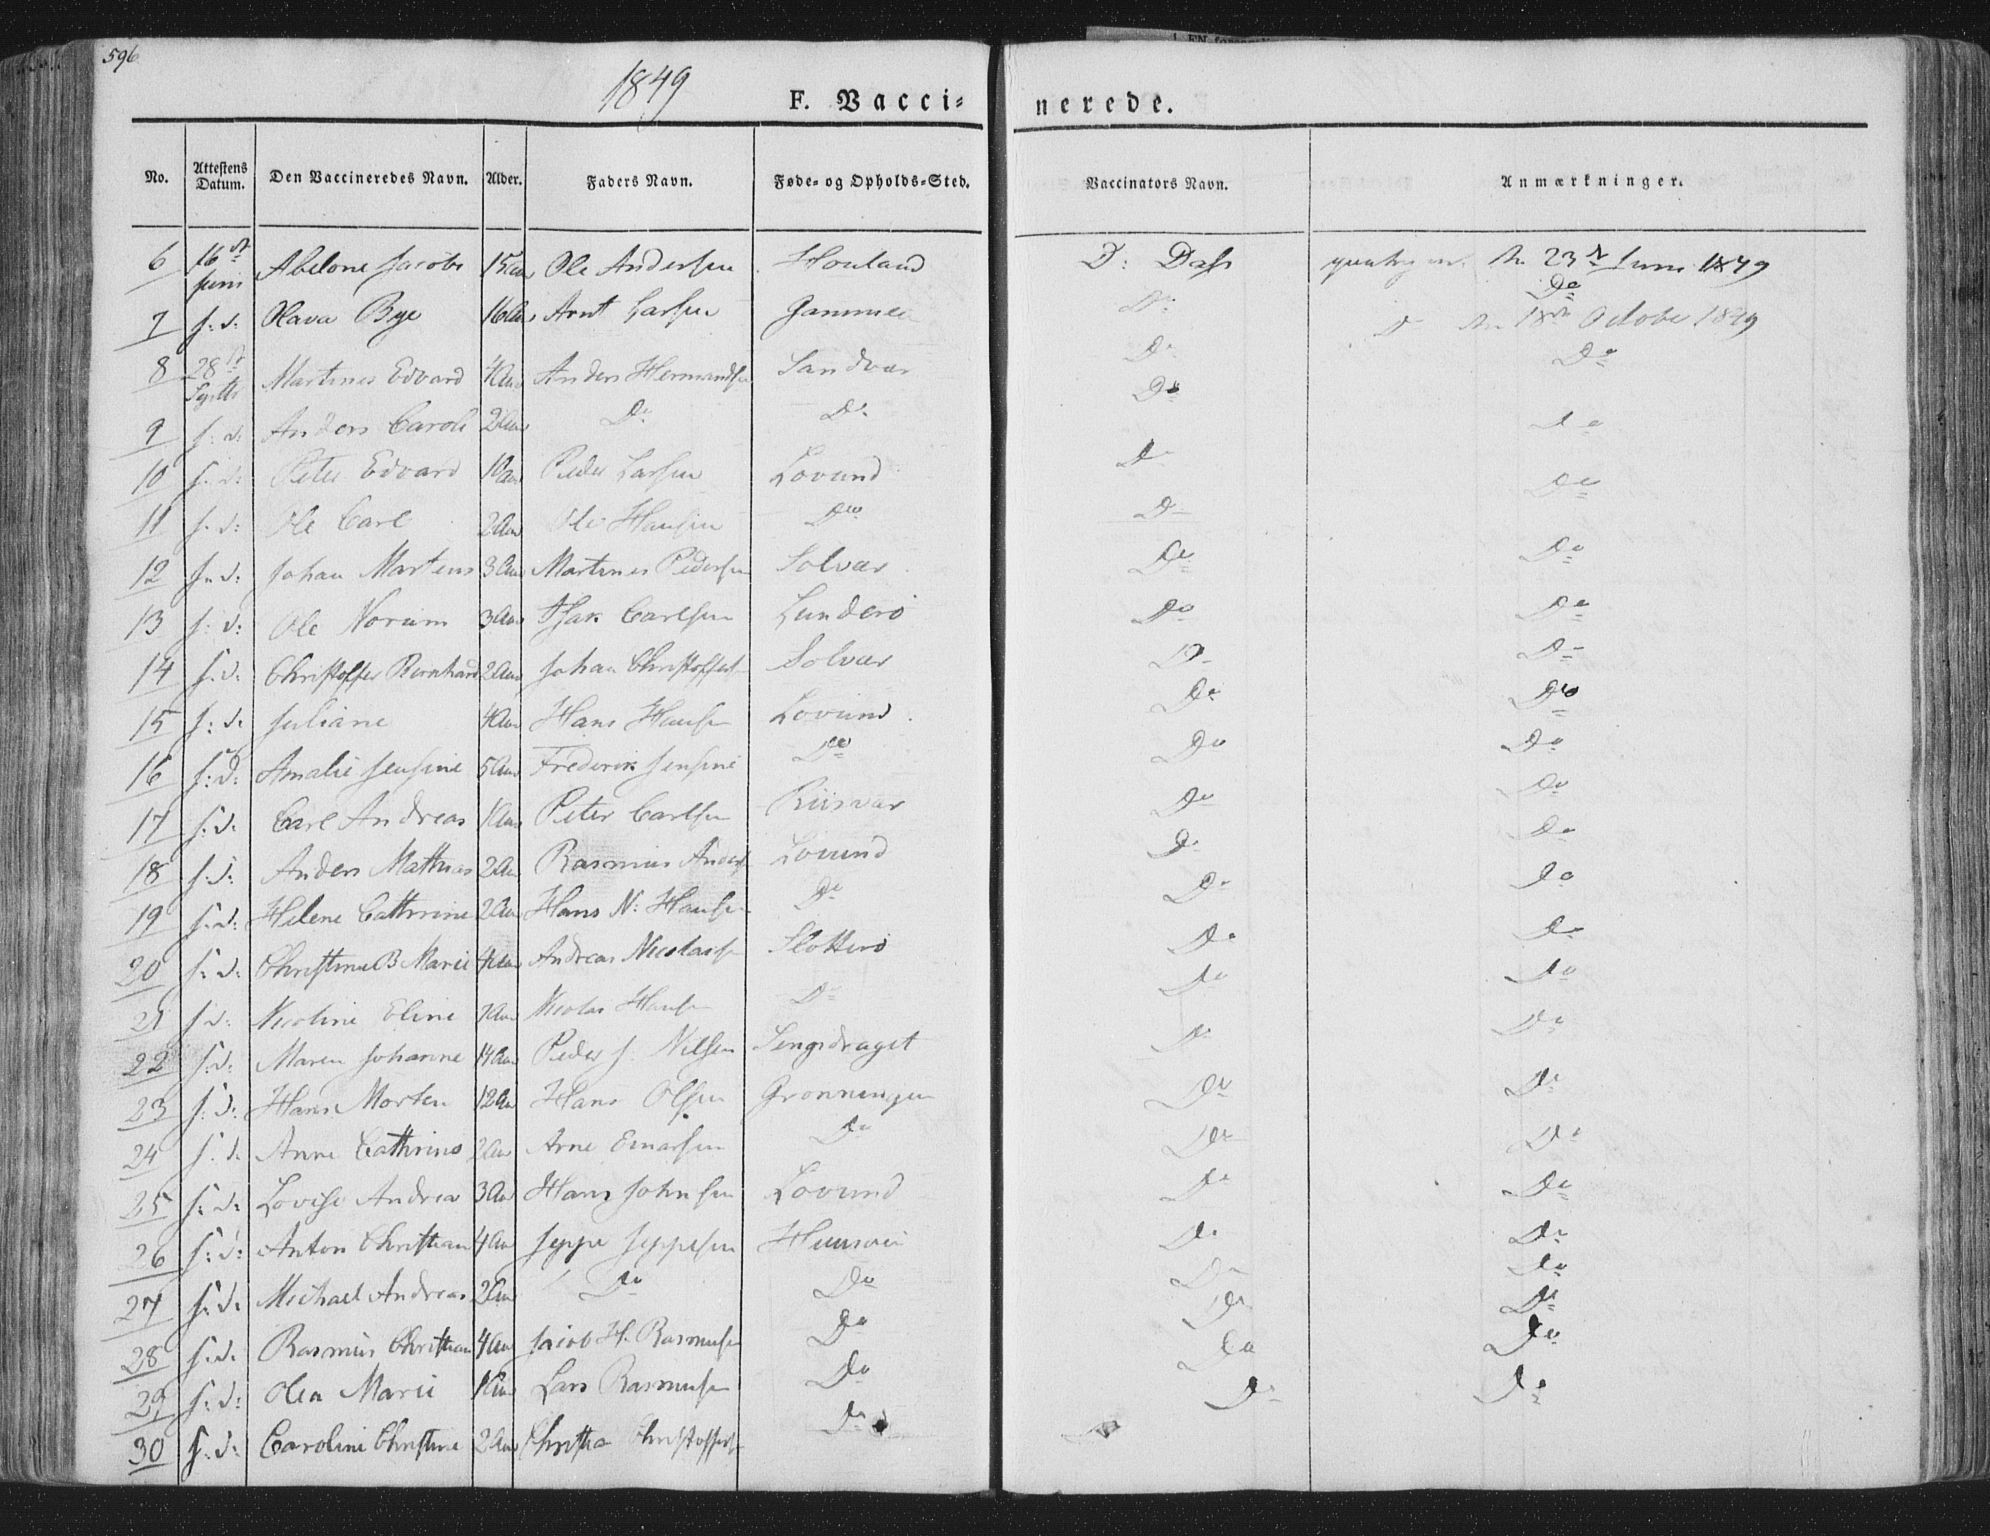 596
1849
F. Vacci-
nerede.
No. Attestens Datum. Den Vaccineredes Navn. Alder. Faders Navn. Føde- og Opholds-Sted. Vaccinators Navn. Anmærkninger.
6 16de Juni Abelone Jacobs 15 Aar Ole Andersen Houland D: Dass 23de Juni 1849
7 s. d. Olava Bye 16 Aar Arnt Larsen D: Do 18de October 1849
8 28de Septb Martines Edvard 4 Aar Anders Hermands Sandvær Do Do
9 s. d. Anders Caroli 2 Aar Do Do Do Do
10 s. d. Peter Edvard 10 Aar Peder Larsen Lovund Do Do
11 s. d. Ole Carl 2 Aar Ole Hansen Do Do
12 s. d: Johan Martens 3 Aar Martines Pedersen Solvær Do Do
13 s: d: Ole Norum 3 Aar Isak Carlsen Lunderö Do Do
14 s. d: Christoffer Bernhard 2 Aar Johan Christoffers Solvær Do Do
15 s: d. Juliane 4 Aar Hans Hansen Lovund Do Do
16 s: d: Amalie Jensine 5 Aar Frederik Jensine Do Do Do
17 s. d. Carl Andreas 1 Aar Peter Carlsen Riisvær Do Do
18 s: d: Anders Mathias 2 Aar Rasmus Anders Lovund Do Do
19 s. d: Helene Cathrine 2 Aar Hans N: Hansen Do Do Do
20 s: d: Christine B Marie 4 Aar Andreas Nicolais Slotterö Do Do
21 s d: Nicoline Eline Aar Nicolas Hansen Do Do Do
22 s: d: Maren Johanne 14 Aar Peder J. Nilsen Lengsdraget Do Do
23 s: d: Hans Morten 12 Aar Hans Olsen Grönningen Do Do
24 s. d. Anne Cathrine 2 Aar Arne Einarsen Do Do Do
25 s: d: Lovise Andrea 3 Aar Hans Johnsen Lovund Do Do
26 s: d: Anton Christian 4 Aar Jeppe Jeppesen Do Do
27 s: d. Michael Andreas 2 Aar Do Do Do Do
28 s. d. Rasmus Christian 4 Aar Jacob H. Rasmusen Do Do Do
29 s: d: Olea Marie 1 Aar Lars Rasmusen Do Do Do
30 s: d: Caroline Christine 2 Aar Christian Christoffers Do Do Do